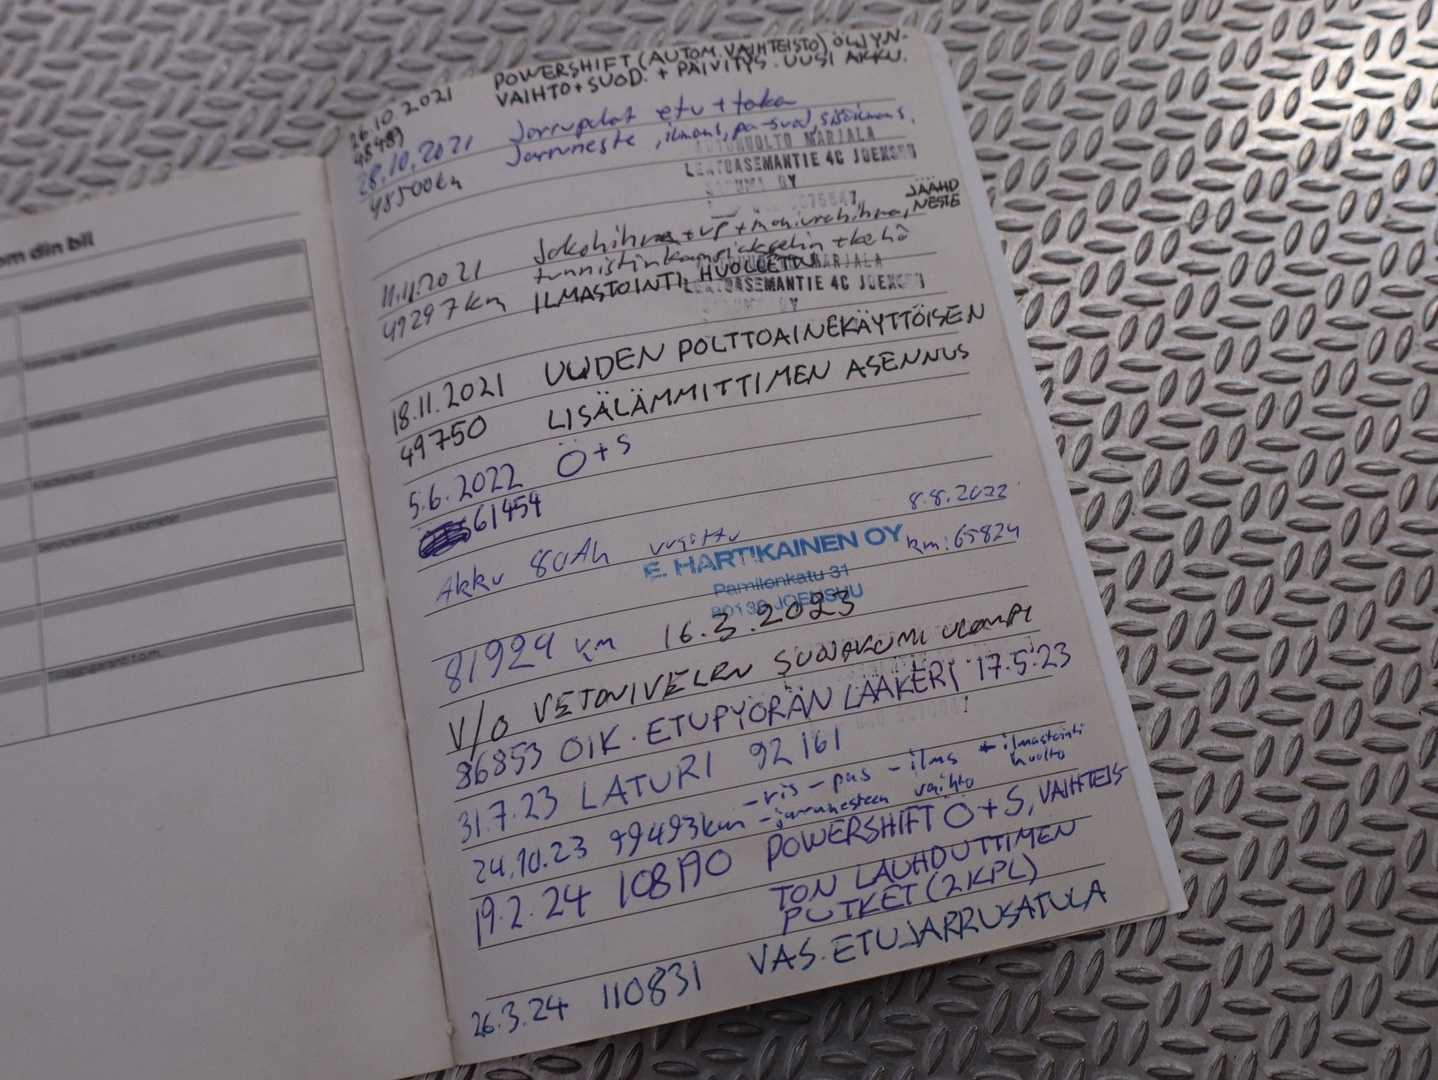 om din bil
26.10.2021 POWERSHIFT (AUTOM. VAIHTEISTO) ÖLJYN-
48489 VAIHTO + SUOD. + PÄIVITYS. UUSI AKKU.
28.10.2021 Jarrupalat etu + taka
48500km Jarruneste, ilmans,
AUTOHUOLTO MARJALA
LENTOASEMANTIE 4C JOENSUU
OY
11.11.2021 Jakohihna + vp + JÄÄHD
NESTE
49297km tunnistin + kehä
ILMASTOINTI HUOLLETTU
MARJALA
LENTOASEMANTIE 4C JOENSUU
OY
18.11.2021 UUDEN POLTTOAINEKÄYTTÖISEN
49750 LISÄLÄMMITTIMEN ASENNUS
5.6.2022 Ö+S
61454
8.8.2022
Akku 80Ah km: 65824
E. HARTIKAINEN OY
Pamilonkatu 31
80130 JOENSUU
81924 km 16.3.2023
V/O VETONIVELEN SUOJAKUMI ULOMPI
86853 OIK. ETUPYÖRÄN LAAKERI 17.5.23
31.7.23 LATURI 92161
24.10.23 99493km - öis - pas - ilms + ilmastointi
- jarrunesteen vaihto huolto
19.2.24 108190 POWERSHIFT Ö+S, VAIHTEIS
TON LAUHDUTTIMEN
PUTKET (2KPL)
26.3.24 110831 VAS. ETUJARRUSATULA